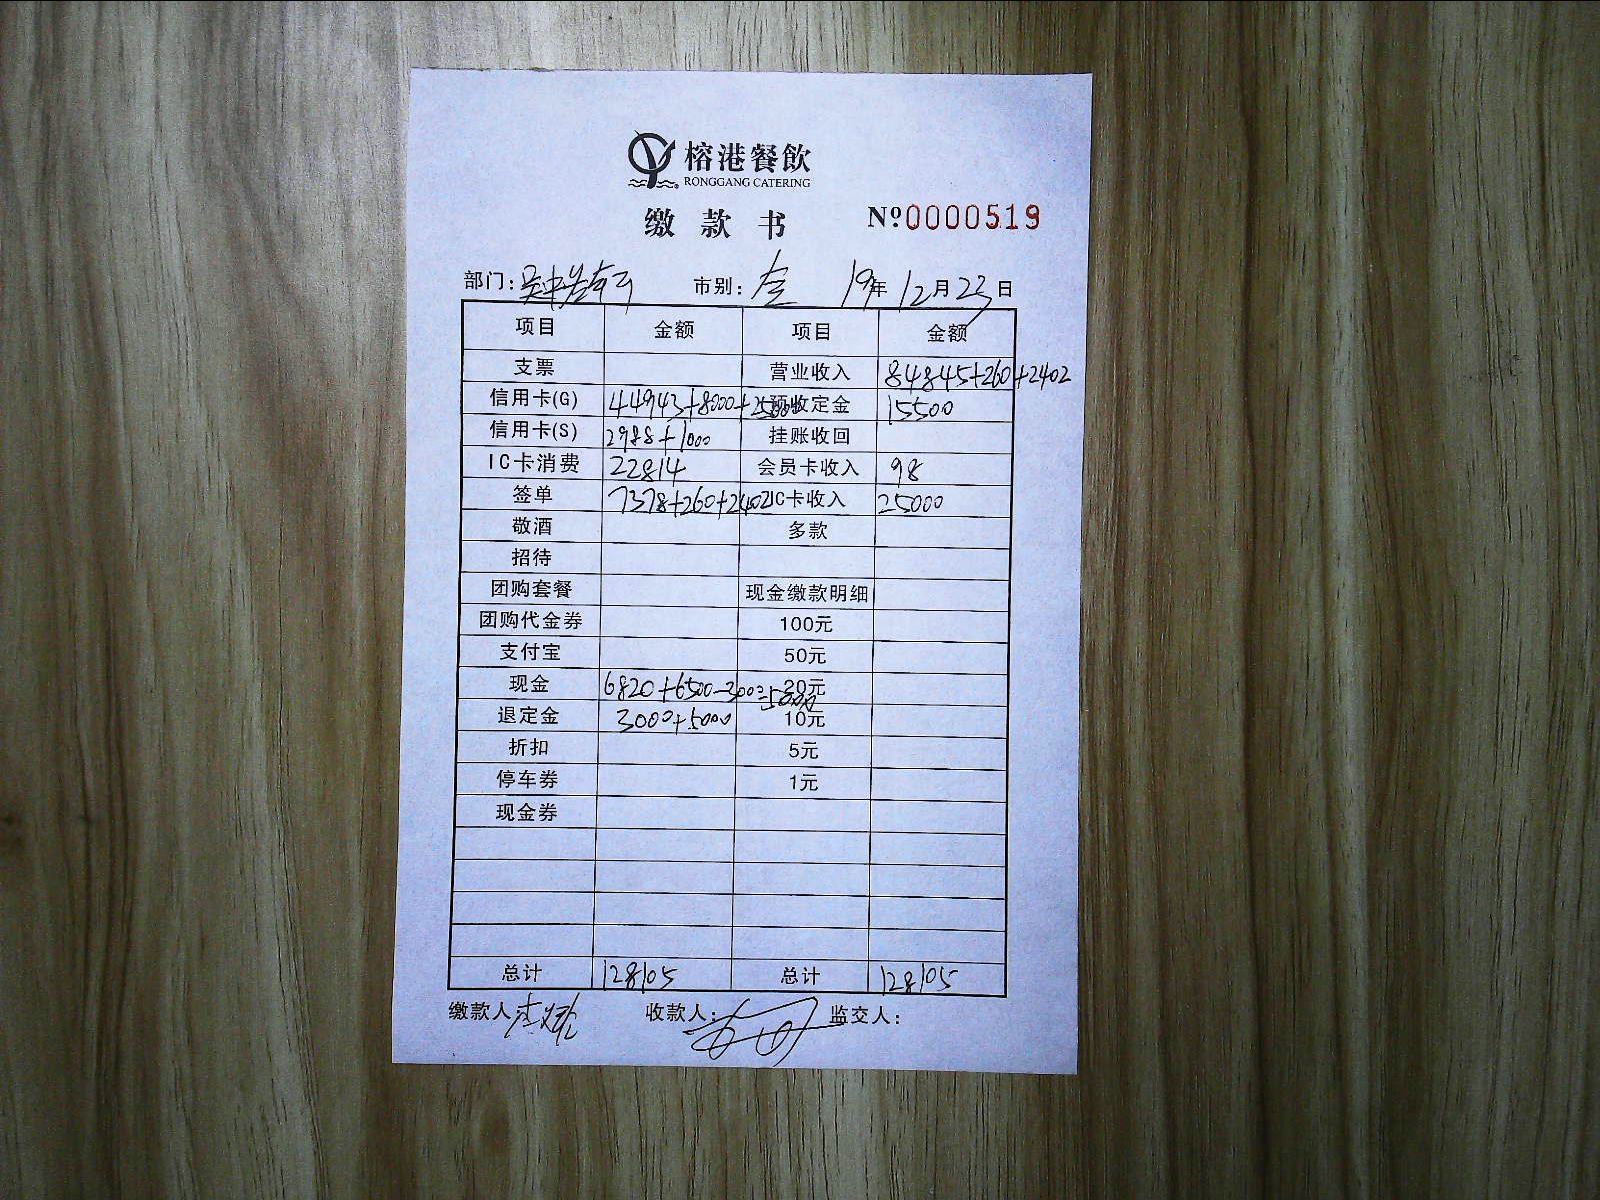 榕港餐飲
RONGGANG CATERING
缴款书 Nº0000519
部门: 市别: 19年12月23日
项目 金额 项目 金额
支票 营业收入 84845+260+2402
信用卡(G) 44943+8000+25000 预收定金 15500
信用卡(S) 2988+1000 挂账收回
IC卡消费 22814 会员卡收入 98
签单 7378+260+2402 IC卡收入 25000
敬酒 多款
招待
团购套餐 现金缴款明细
团购代金券 100元
支付宝 50元
现金 6820+6500-300= 20元
退定金 3000+5000 10元
折扣 5元
停车券 1元
现金券
总计 128105 总计 128105
缴款人 收款人: 监交人: